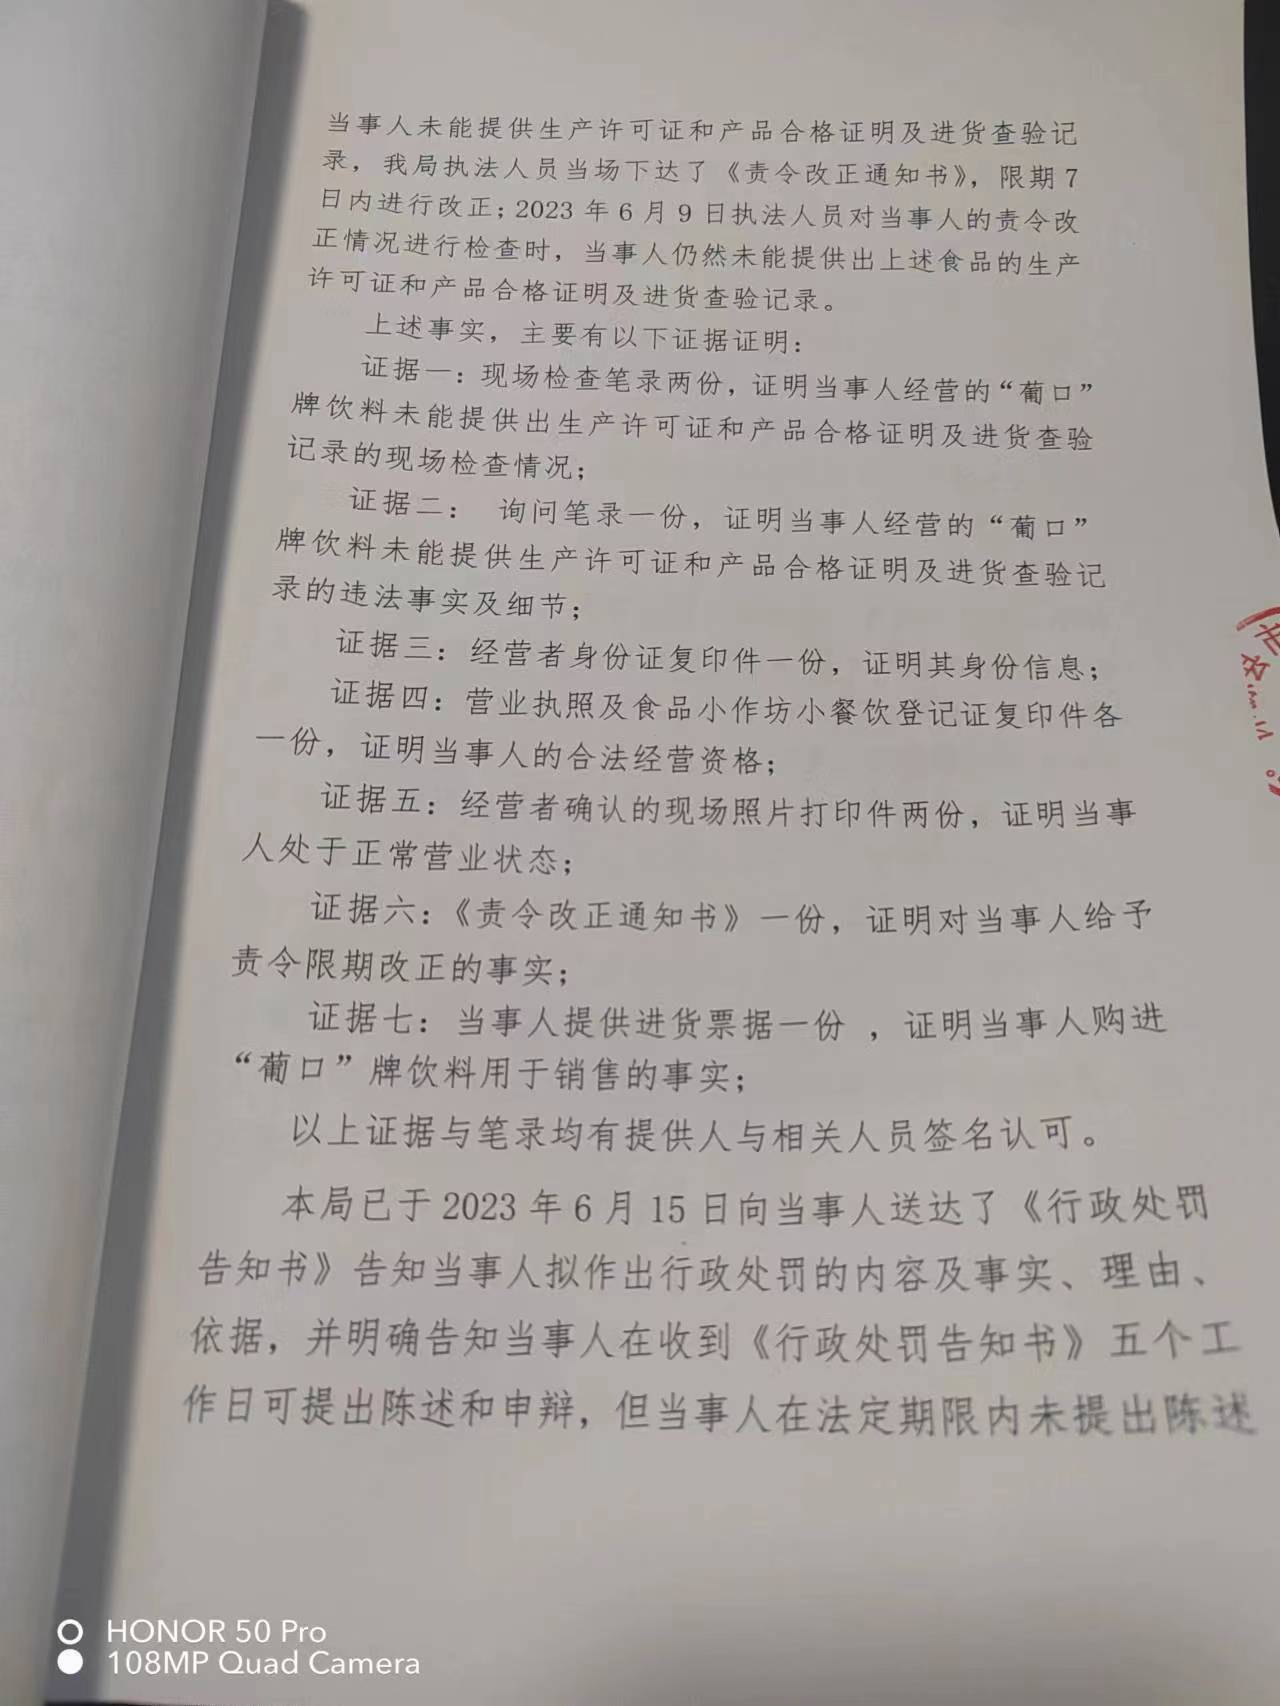 当事人未能提供生产许可证和产品合格证明及进货查验记
录，我局执法人员当场下达了《责令改正通知书》，限期7
日内进行改正；2023年6月9日执法人员对当事人的责令改
正情况进行检查时，当事人仍然未能提供出上述食品的生产
许可证和产品合格证明及进货查验记录。
上述事实，主要有以下证据证明：
证据一：现场检查笔录两份，证明当事人经营的“葡口”
牌饮料未能提供出生产许可证和产品合格证明及进货查验
记录的现场检查情况；
证据二： 询问笔录一份，证明当事人经营的“葡口”
牌饮料未能提供生产许可证和产品合格证明及进货查验记
录的违法事实及细节；
证据三：经营者身份证复印件一份，证明其身份信息；
证据四：营业执照及食品小作坊小餐饮登记证复印件各
一份，证明当事人的合法经营资格；
证据五：经营者确认的现场照片打印件两份，证明当事
人处于正常营业状态；
证据六：《责令改正通知书》一份，证明对当事人给予
责令限期改正的事实；
证据七：当事人提供进货票据一份 ，证明当事人购进
“葡口”牌饮料用于销售的事实；
以上证据与笔录均有提供人与相关人员签名认可。
本局已于2023年6月15日向当事人送达了《行政处罚
告知书》告知当事人拟作出行政处罚的内容及事实、理由、
依据，并明确告知当事人在收到《行政处罚告知书》五个工
作日可提出陈述和申辩，但当事人在法定期限内未提出陈述
HONOR 50 Pro
108MP Quad Camera